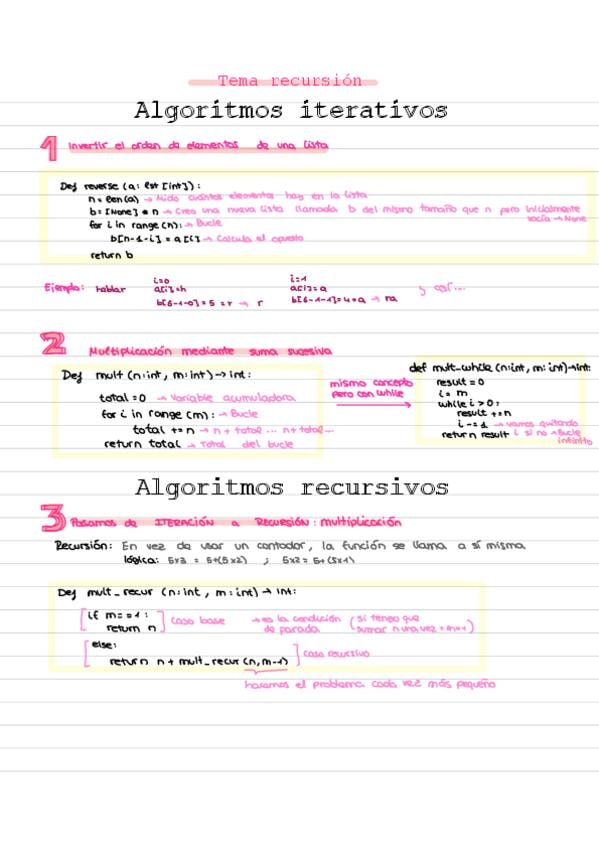 Tema recursión
Algoritmos iterativos
1 Invertir el orden de elementos de una lista
Def reverse (a: lst [int]):
n = len(a) → Mido cuántos elementos hay en la lista
b = [None] * n → Creo una nueva lista llamada b del mismo tamaño que n pero inicialmente vacía → None
for i in range(n): → Bucle
b[n-1-i] = a[i] → Calcula el opuesto
return b
Ejemplo: hablar
i=0
a[i]=h
b[6-1-0]=5=r → r
i=1
a[i]=a
b[6-1-1]=4=a → ra
y así...
2 Multiplicación mediante suma sucesiva
Def mult (n:int, m:int) → int:
total = 0 → Variable acumuladora
for i in range (m): → Bucle
total += n → n + total ... n + total...
return total → Total del bucle
mismo concepto
pero con while
def mult_while (n:int, m:int)→int:
result = 0
i = m
while i > 0:
result += n
i -= 1 → vamos quitando
return result
i si no → Bucle
infinito
Algoritmos recursivos
3 Pasamos de ITERACIÓN a RECURSIÓN: multiplicación
Recursión: En vez de usar un contador, la función se llama a sí misma
lógica: 5x3 = 5+(5x2) ; 5x2 = 5+(5x1)
Def mult_recur (n:int, m:int) → int:
if m == 1:
return n
caso base
→ es la condición
de parada
(si tengo que
sumar n una vez = m=1)
else:
return n + mult_recur (n, m-1)
caso recursivo
hacemos el problema cada vez más pequeño